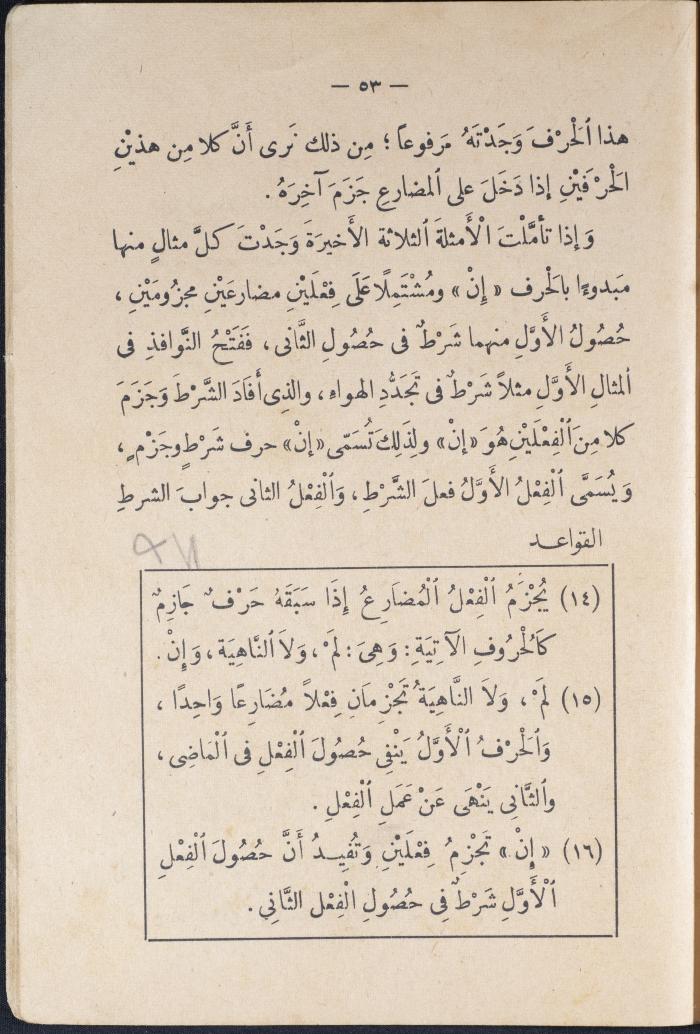 — ٥٣ —
هذا ٱلْحرْفَ وَجَدْتَهُ مَرفوعاً ؛ مِن ذلك نَرى أَنَّ كلا مِن هذيْنِ
ٱلْحرْفَيْنِ إذا دَخَلَ على ٱلمضارعِ جَزَمَ آخِرَهُ .
وَإذا تأمَّلْتَ ٱلْأَمثلةَ ٱلثلاثة الأَخيرَةَ وَجَدْتَ كلَّ مثالٍ منها
مَبدوءًا بالْحرف « إِنْ » ومُشْتَمِلًا عَلَى فِعْلَيْنِ مضارعَيْنِ مجزُومَيْنِ ،
حُصُولُ الأَوَّلِ منهما شَرْطٌ فى حُصُولِ الثَّانى ، فَفَتْحُ النَّوافذِ فى
ٱلمثالِ الأَوَّلِ مثلاً شَرْطٌ فى تَجَدُّدِ الهواءِ ، والذِى أَفَادَ الشَّرْطَ وَجَزَمَ
كلا مِنَ ٱلْفِعْلَيْنِ هُوَ « إنْ » ولِذَلِكَ تُسَمّى « إنْ » حرف شَرْطٍ وجَزْمٍ ،
وَيُسَمَّى ٱلْفِعْلُ الأَوَّلُ فعلَ الشَّرْطِ ، وَٱلْفِعْلُ الثانى جوابَ الشرطِ
القواعد
(١٤) يُجْزَمُ ٱلْفِعْلُ ٱلْمُضَارِعُ إِذَا سَبَقَهُ حَرْفٌ جَازِمٌ
كَالْحُرُوفِ الآتِيَةِ : وَهِىَ : لَمْ ، وَلاَ ٱلنَّاهِيَة ، وَإِنْ .
(١٥) لَمْ ، وَلاَ النَّاهِيَةُ تَجْزِمَانِ فِعْلاً مُضَارِعًا وَاحِدًا ،
وَٱلْحَرْفُ ٱلْأَوَّلُ يَنْفِى حُصُولَ ٱلْفِعْلِ فى ٱلْمَاضِى ،
وٱلثَّانِى يَنْهَى عَنْ عَمَلِ ٱلْفِعْلِ .
(١٦) « إِنْ » تَجْزِمُ فِعْلَيْنِ وَتُفِيدُ أَنَّ حُصُولَ ٱلْفِعْلِ
ٱلْأَوَّلِ شَرْطٌ فِى حُصُولِ الْفِعْل الثَّانِي .